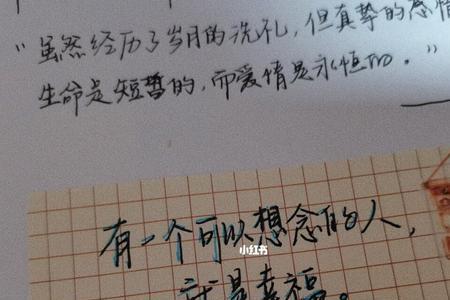 “虽然经历了岁月的洗礼,但真挚的感情
生命是短暂的,而爱情是永恒的。”
有一个可以想念的人,
小红书
就是幸福。